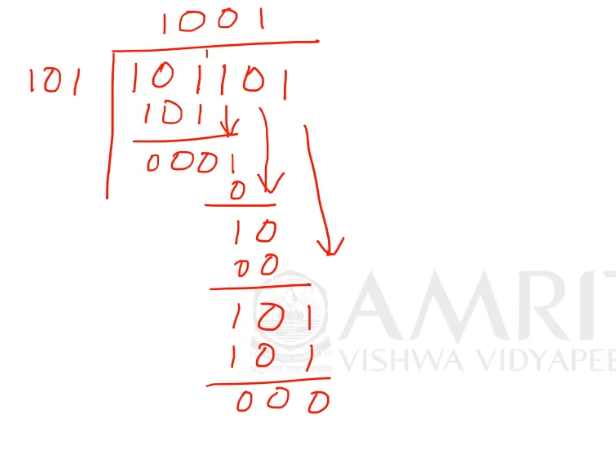 1001
101 101101
101
0001
0
10
00
101
101
000
AMRIT
VISHWA VIDYAPEE